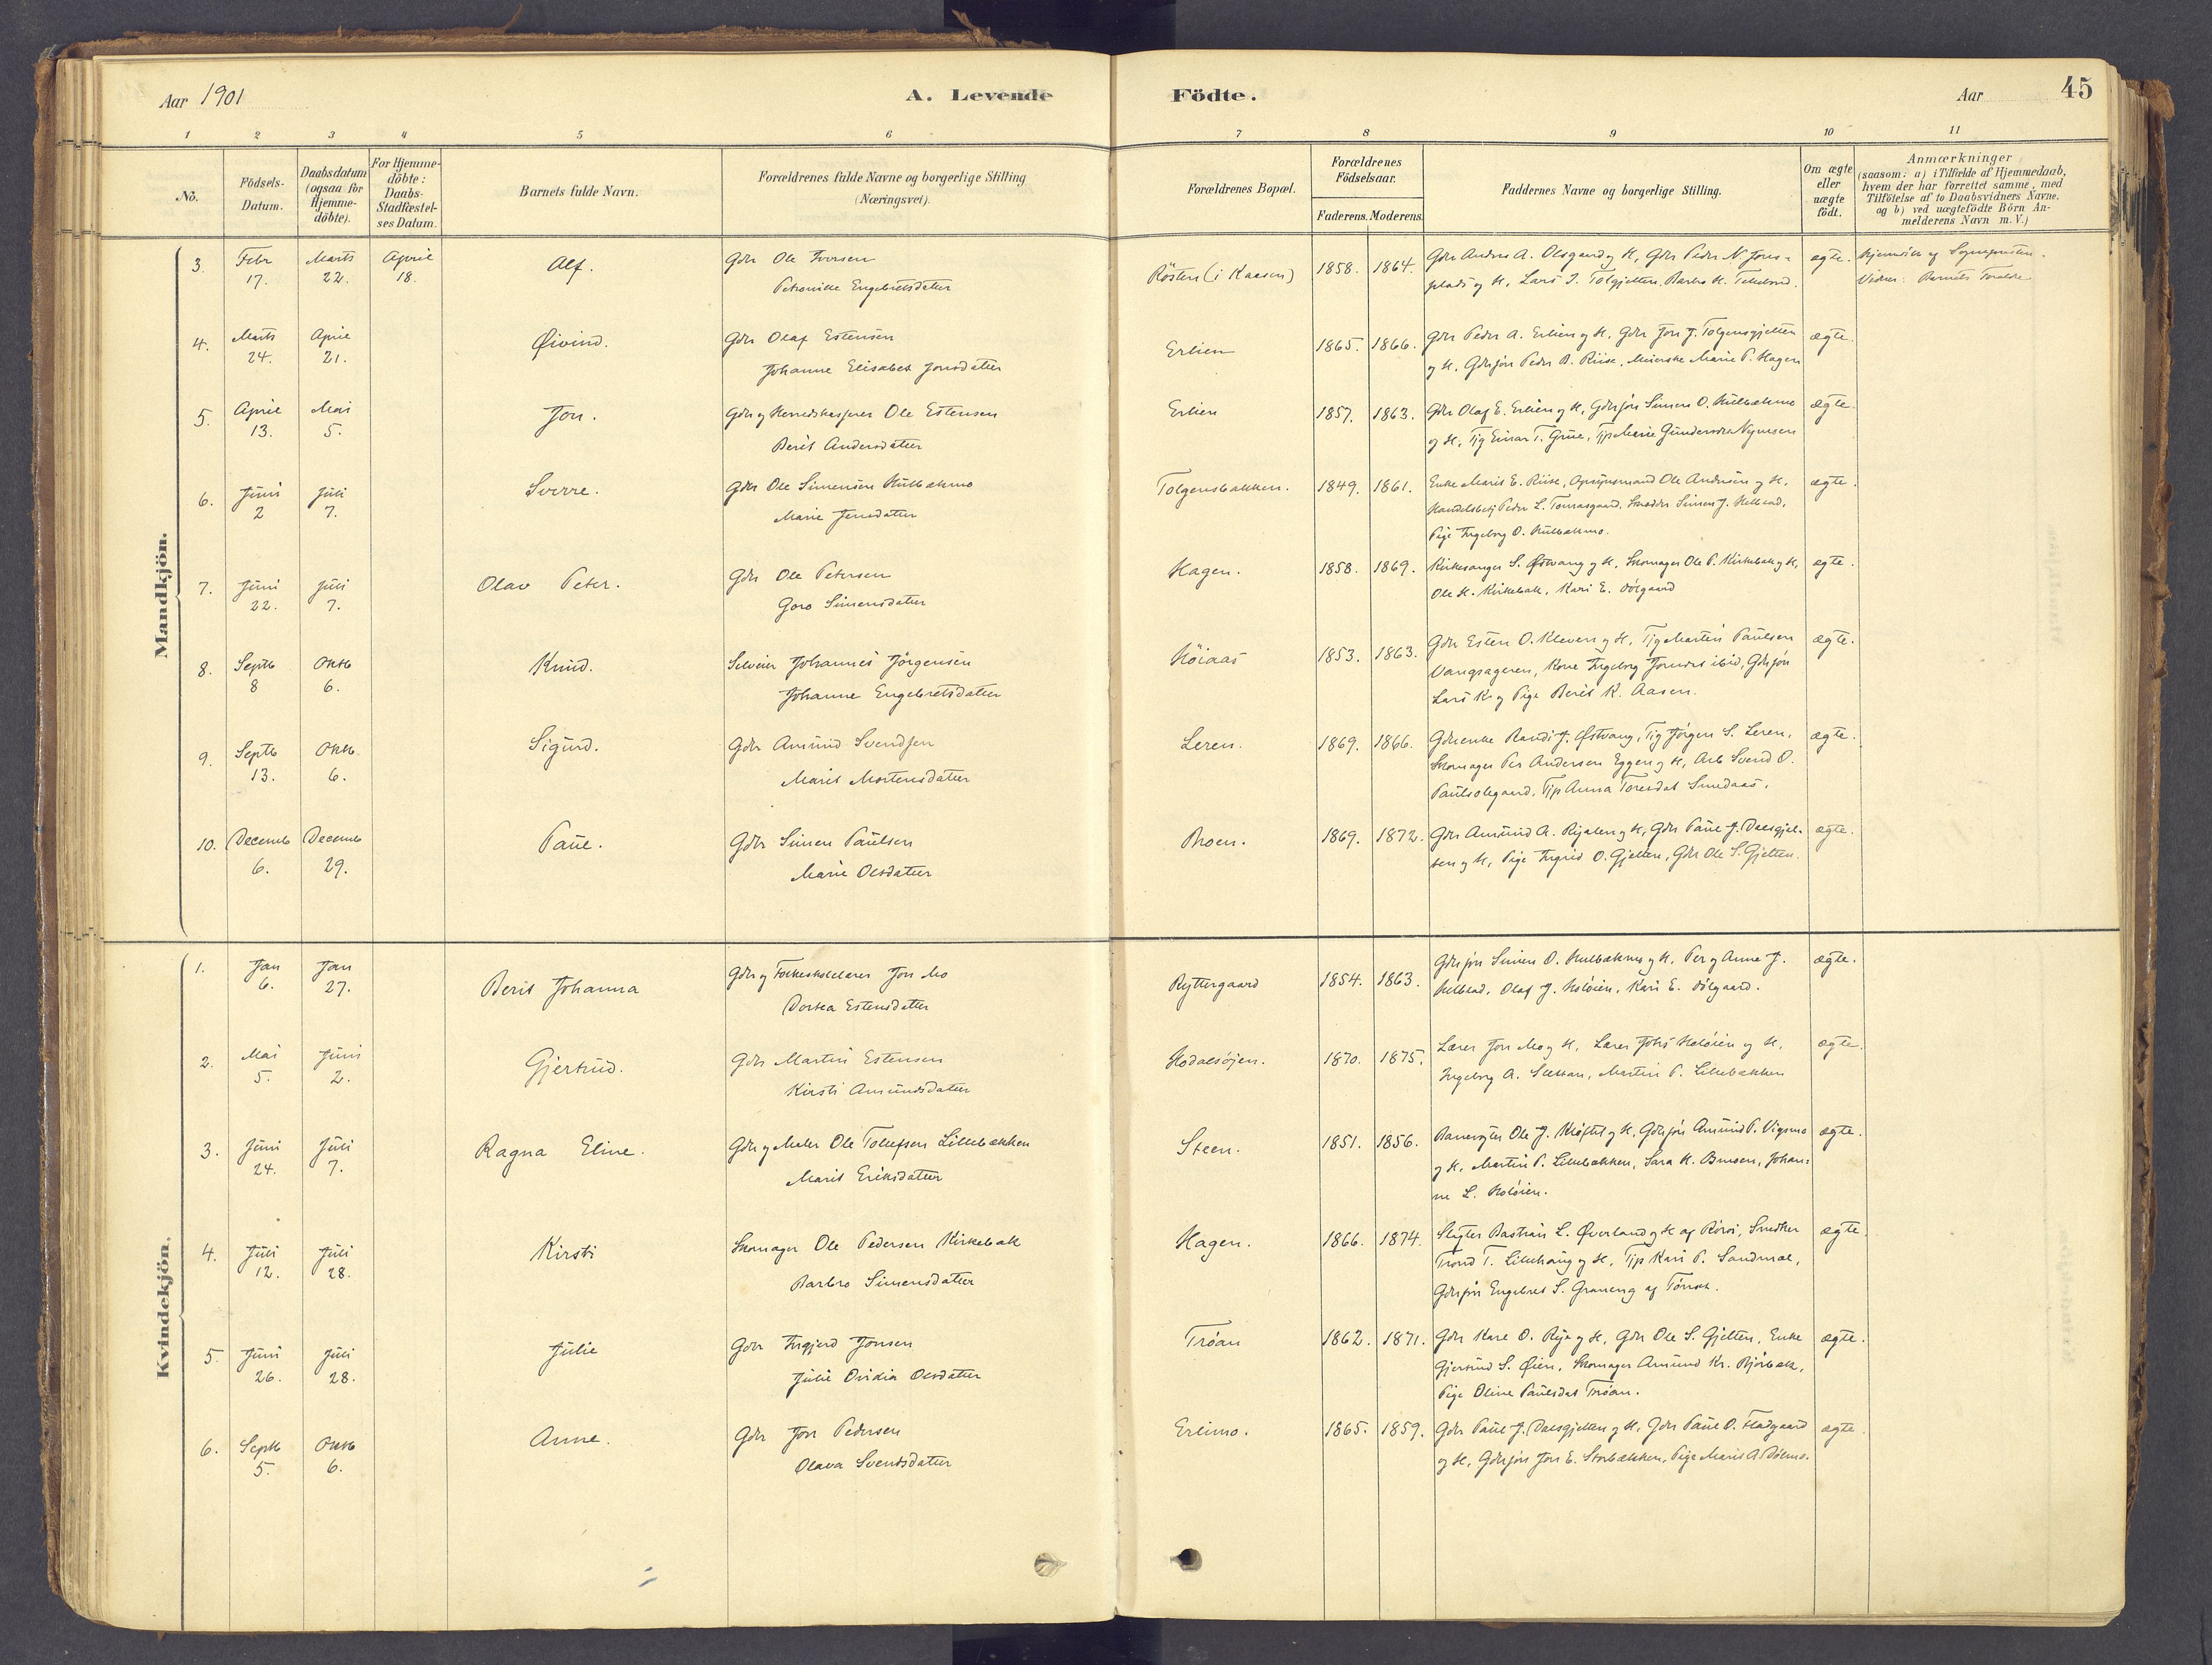 Aar 1901
A. Levende Födte.
Aar
45
1 2 3 4 5 6 7 8 9 10 11
No.
Födsels-Datum.
Daabsdatum (ogsaa for Hjemme-döbte).
For Hjemme-döbte: Daabs-Stadfæstel-ses Datum.
Barnets fulde Navn.
Forældrenes fulde Navne og borgerlige Stilling
(Næringsvei).
Forældrenes Bopæl.
Forældrenes Födselsaar.
Faderens. Moderens.
Faddernes Navne og borgerlige Stilling.
Om ægte eller uægte födt.
Anmærkninger
(saasom: a) i Tilfælde af Hjemmedaab,
hvem der har forrettet samme, med
Tilföielse af to Daabsvidners Navne,
og b) ved uægtefödte Börn An-
melderens Navn m. V.)
Mandkjön.
3. Febr 17. Marts 22. April 18. Alf. Gdr Ole Iversen
Petronille Engebretsdatter
Rösten (i Kaasen) 1858. 1864.
Gdr Andrs A. Olsgaard og H, Gdr Peder N. Jons-
plads og H, Lars J. Tolgjetten, Barbro H.
ægte.
Vidner: Barnets Forældre
4. Marts 24. April 21. Øivind. Gdr Olaf Estensen
Johanne Elisabet Jonsdatter
Erlien 1865. 1866.
Gdr Peder A. Erlien og H, Gdr Jon J. Tolgensgjetten
og H, Gdrsøn Peder B. Riise, Meierske Marie P. Hagen
ægte.
5. April 13. Mai 5. Jon. Gdr og Herredskasserer Ole Estensen
Berit Andersdatter
Erlien 1857. 1863.
Gdr Olaf E. Erlien og H, Gdrsøn Simen O. Kulbækmo
og H, Tjg Einar T. Grue, Tjp Marie Gundersdtr
ægte.
6. Juni 2 Juli 7. Sverre. Gdr Ole Simensen Kulbækmo
Marie Jensdatter
Tolgensbakken. 1849. 1861.
Enke Marit E. Riise, Opsynsmand Ole Andersen og H,
Handelsbetj Peder L. Tomasgaard, Simen J.
Pige Ingeborg O. Kulbækmo.
ægte.
7. Juni 22. Juli 7. Olav Peter. Gdr Ole Petersen
Goro Simensdatter
Hagen. 1858. 1869.
Kirkesanger S. Østvang og H, Skomager Ole P. Kirkebak og H,
Ole H. Kirkebak, Kari E.
ægte.
8. Septb 8 Oktb 6. Knud. Selveier Johannes Jörgensen
Johanne Engebretsdatter
Höiaas 1853. 1863.
Gdr Esten O. Kleven og H, Tjg Martin Paulsen
Kone Ingeborg Jonsdtr ibid, Gdrsøn
Lars K. og Pige Berit K. Aasen.
ægte.
9. Septb 13. Oktb 6. Sigurd. Gdr Amund Svendsen
Marit Mortensdatter
Leren. 1869. 1866.
Gdrenke Randi J. Østvang, Tjg Jörgen S. Leren,
Skomager Per Andersen Eggen og H, Arb Svend O.
Paulsolegaard, Tjp Anna Toresdat Smedaas.
ægte.
10. Decemb 6. Decemb 29. Paul. Gdr Simen Paulsen
Marie Olsdatter
Broen. 1869. 1872.
Gdr Amund A. og H, Gdr Paul J. Dalsgjet-
ten og H, Pige Ingrid O. Gjetten, Gdr Ole S. Gjetten.
ægte.
Kvindekjön.
1. Jan 6. Jan 27. Berit Johanna Gdr og Folkeskolelærer Jon Mo
Dortea Estensdatter
Ryttergaard 1854. 1863.
Gdrsøn Simen O. Kulbækmo og H, Per og Anne J.
Olaf J. Holøien, Kari E.
ægte.
2. Mai 5. Juni 2. Gjertrud. Gdr Martin Estensen
Kirsti Amundsdatter
Hodalsöjen. 1870. 1875.
Lærer Jon Mo og H, Lærer Johs Holöien og H,
Ingeborg A. Martin P. Lillebækken
ægte.
3. Juni 24. Juli 7. Ragna Eline. Gdr og Maler Ole Tollefsen Lillebækken
Marit Eriksdatter
Steen. 1851. 1856.
Banevogter Ole J. og H, Gdrsøn Amund P. Vigsmo
og H, Martin P. Lillebækken, Sara K. Johan-
ne L. Holöien.
ægte.
4. Juli 12. Juli 28. Kirsti Skomager Ole Pedersen Kirkebak
Barbro Simensdatter
Hagen. 1866. 1874.
Slagter Bastian L. Øverland og H af Röros, Snedker
Trond T. Lillehaug og H, Tjp Kari P. Sandmæl,
Gdrsøn Engebret S. Graneng af Tönset.
ægte.
5. Juni 26. Juli 28. Julie Gdr Ingjerd Jonsen
Julie Ovidia Olsdatter
Tröan 1862. 1871.
Gdr Kare O. Rye og H, Gdr Ole S. Gjetten, Enke
Gjertrud S. Øien, Skomager Amund Kr. Björbæk,
Pige Oline Paulsdat Tröan.
ægte.
6. Septb 5. Oktb 6. Anne. Gdr Jon Pedersen
Olava Svendsdatter
Erlimo. 1865. 1859.
Gdr Paul J. Dalsgjetten og H, Gdr Paul O. Fladgaard
og H, Gdrsøn Jon E. Storbækken, Pige Marit A. Dölmo.
ægte.